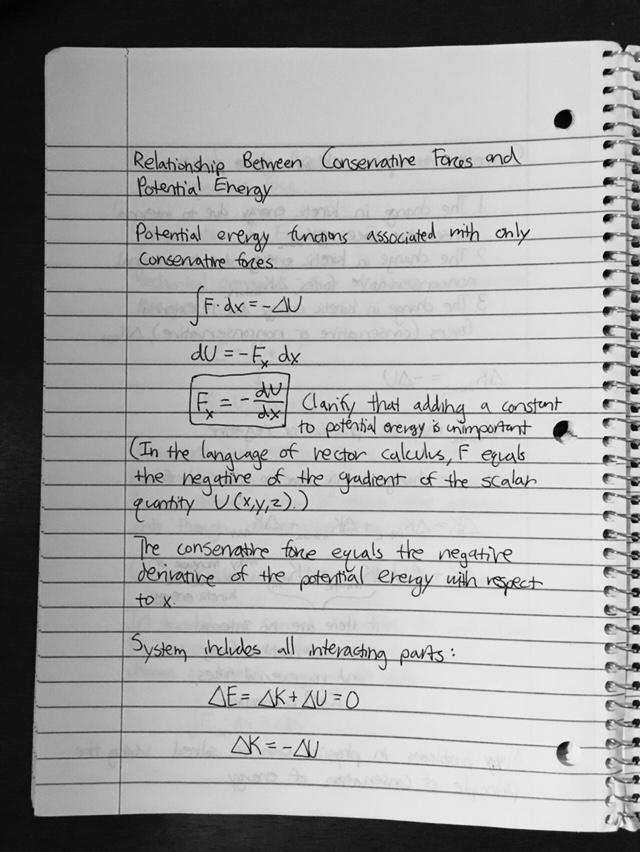 Relationship Between Conservative Forces and
Potential Energy
Potential energy functions associated with only
conservative forces.
∫F·dx = -ΔU
dU = -Fₓ dx
Fₓ = -dU/dx Clarify that adding a constant
to potential energy is unimportant
(In the language of vector calculus, F equals
the negative of the gradient of the scalar
quantity U(x,y,z).)
The conservative force equals the negative
derivative of the potential energy with respect
to x.
System includes all interacting parts:
ΔE = ΔK + ΔU = 0
ΔK = -ΔU